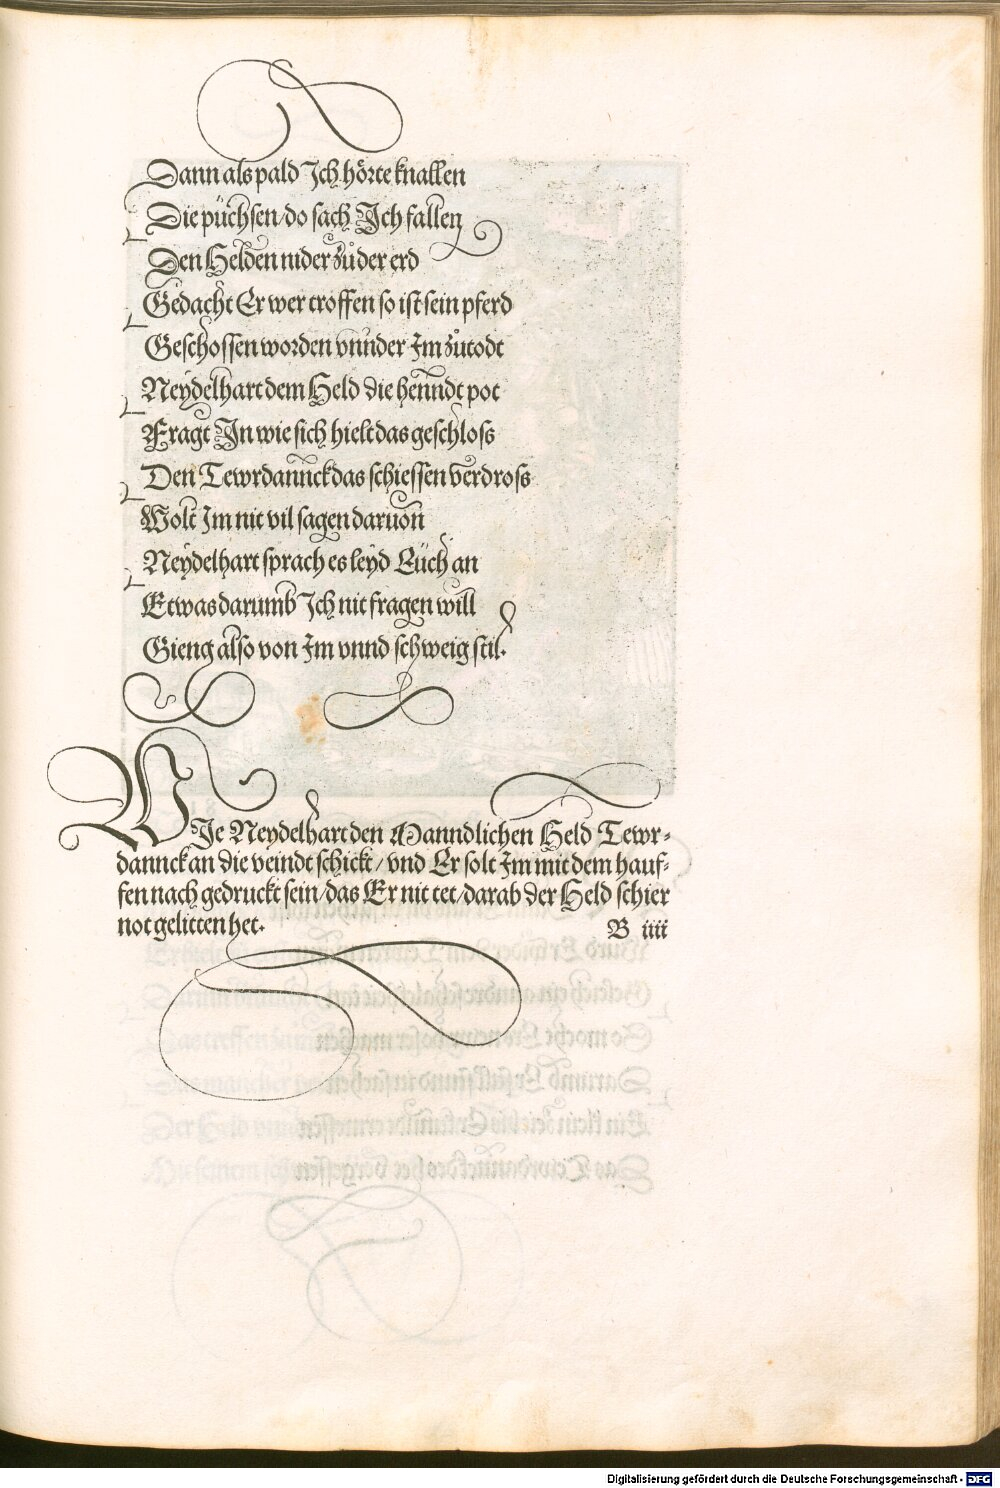 Dann als pald Ich hörte knallen
Die püchsen/do sach Ich fallen
Den Helden nider zů der erd
Gedacht Er wer troffen so ist sein pferd
Geschossen worden vnnder Im zů todt
Neydelhart dem Held die henndt pot
Fragt In wie sich hielt das geschloss
Den Tewrdannck das schiessen verdross
Wolt Im nit vil sagen daruon
Neydelhart sprach es leyd Eüch an
Etwas darumb Ich nit fragen will
Gieng also von Im vnnd schweig stil.
WIe Neydelhart den Manndlichen Held Tewr-
dannck an die veindt schickt/vnd Er solt Im mit dem hauf-
fen nach gedruckt sein/das Er nit tet/darab der Held schier
not gelitten het.
B iiii
Digitalisierung gefördert durch die Deutsche Forschungsgemeinschaft - DFG